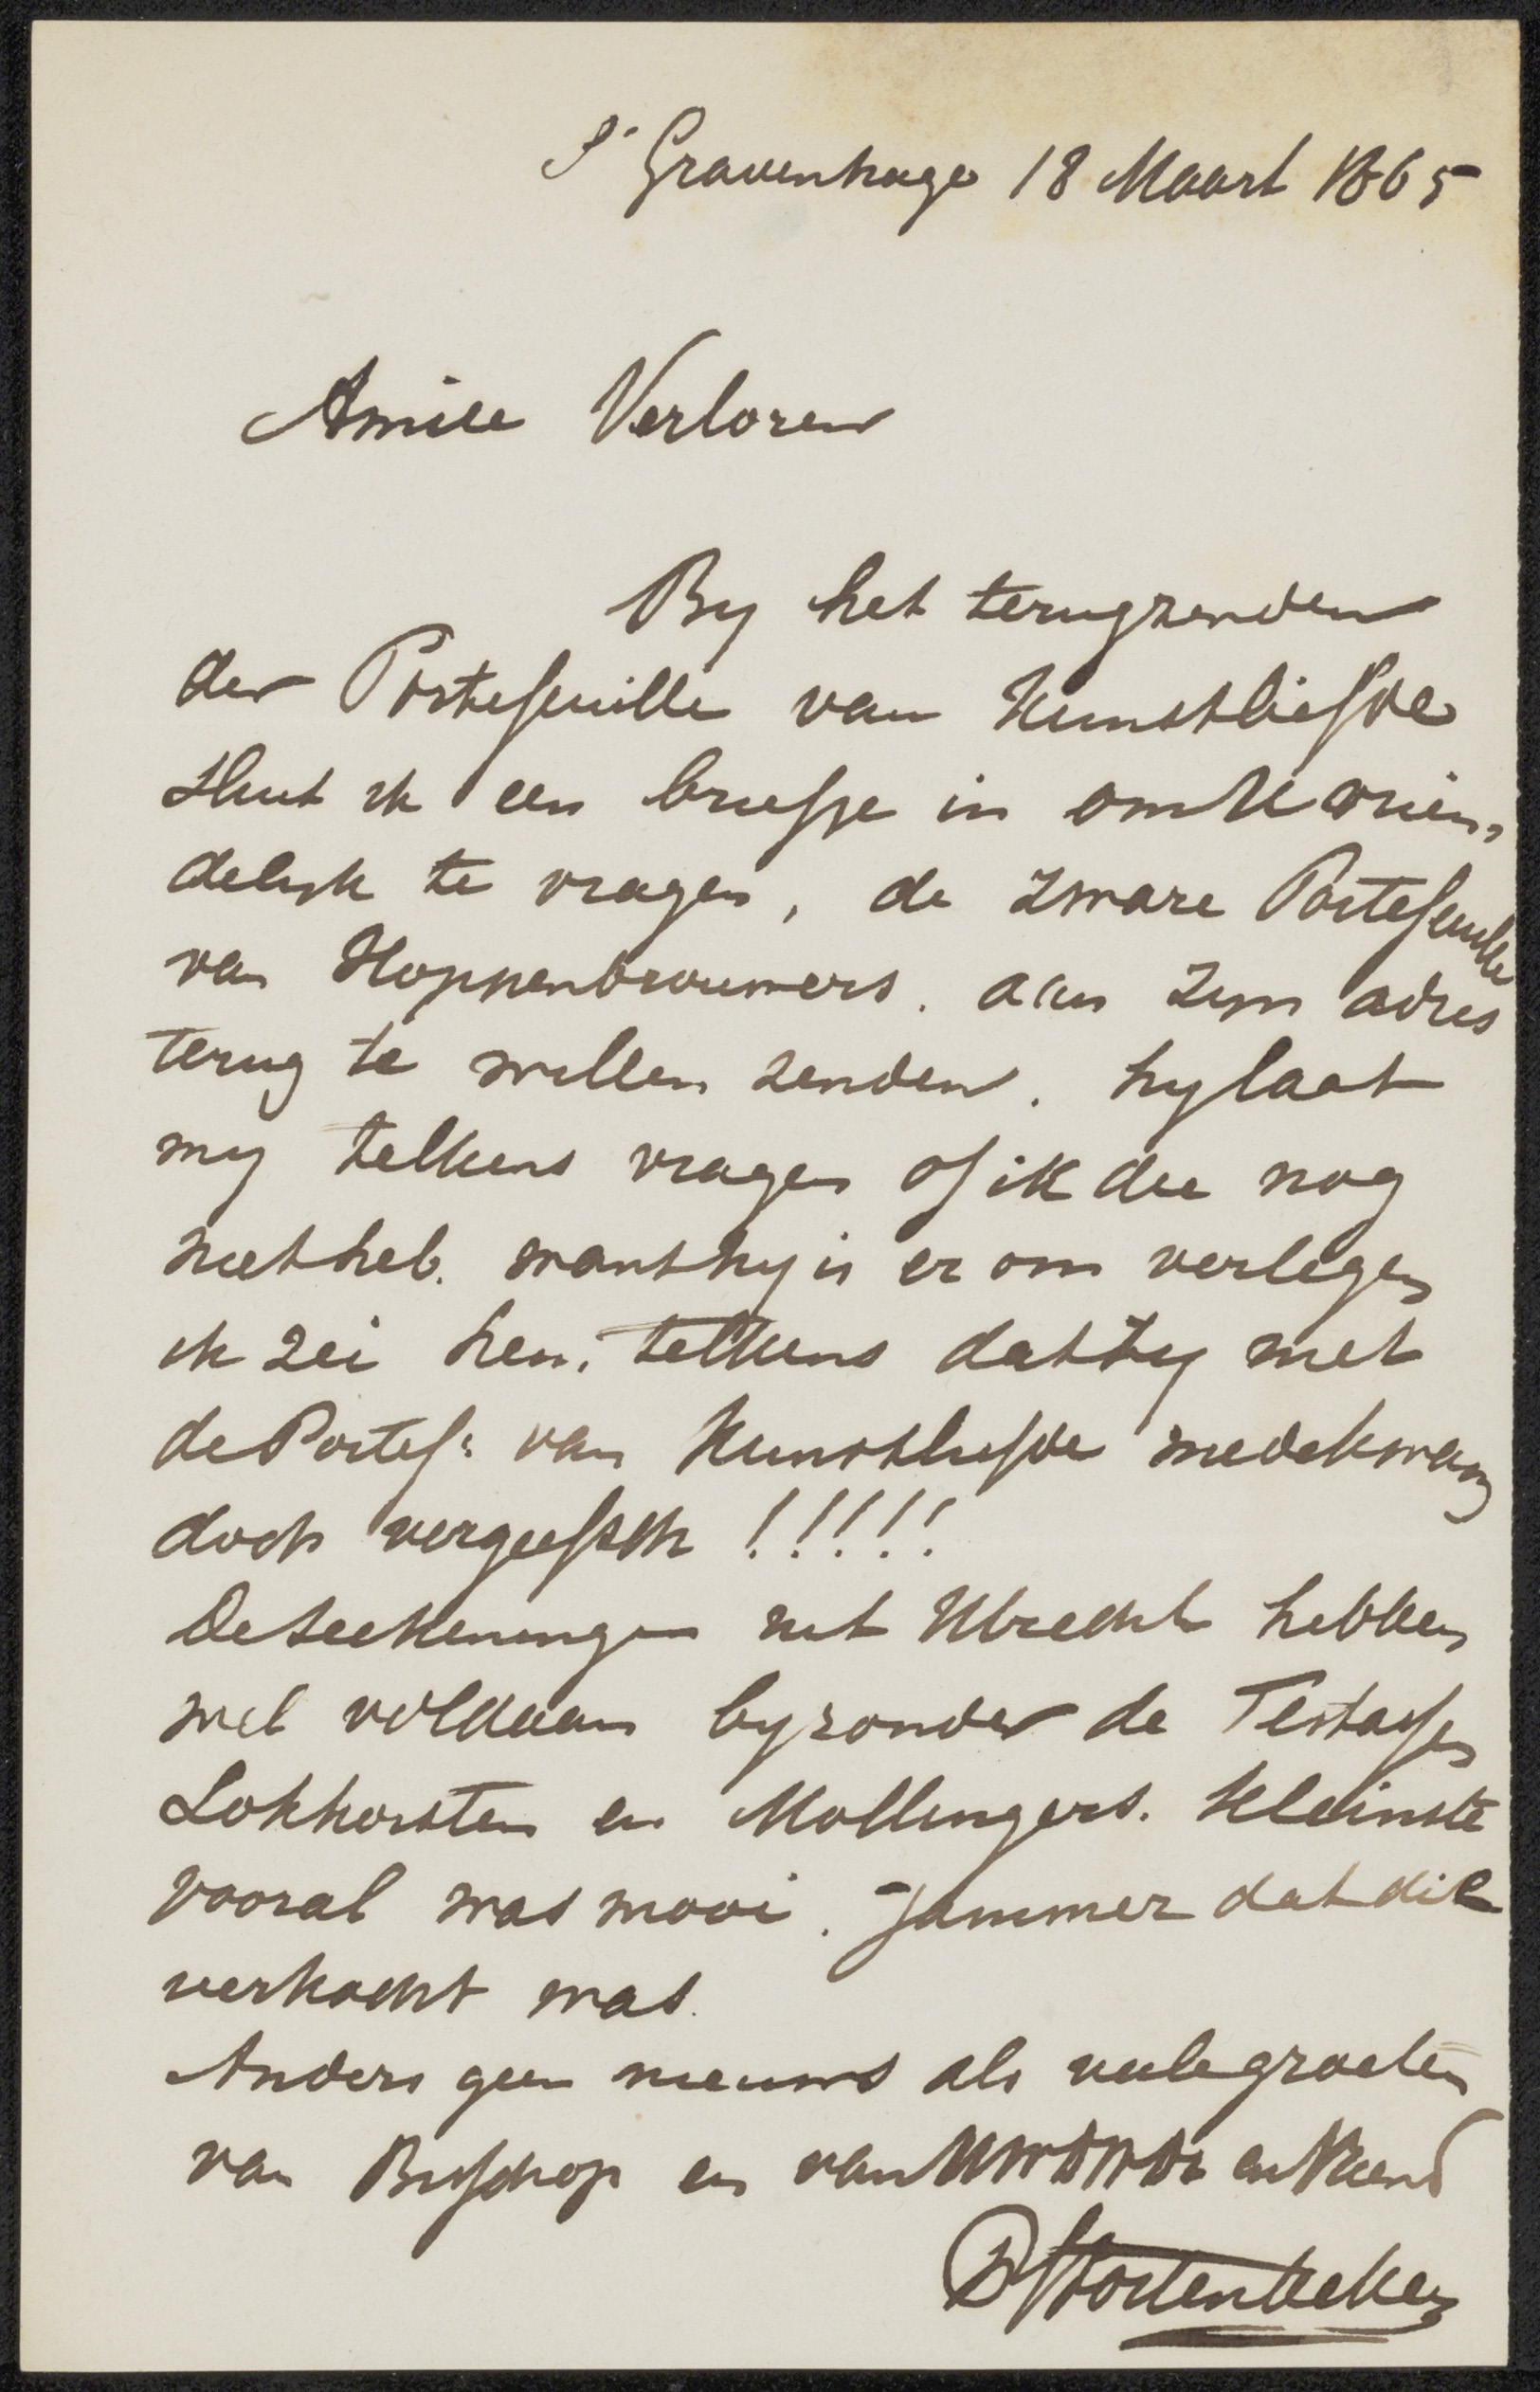 S' Gravenhage 18 Maart 1865
Amice Verloren
By het terugzenden
der Portefeuille van Kunstliefde
sluit ik een briefje in om U vrien-
delyk te vragen, de zware Portefeuille
van Hoppenbrouwers. aan zyn adres
terug te willen zenden. hy laat
my telkens vragen of ik die nog
niet heb. want hy is er om verlegen
ik zei hem telkens dat hy met
de Portef: van Kunstliefde medekwam
doch vergeefsch !!!!!
De teekeningen uit Utrecht hebben
wel voldaan byzonder de Testasen
Lokhorsten en Mollingers. kleinste
vooral was mooi. Jammer dat die
verkocht was.
Anders geen nieuws als veele groeten
van Bisschop en van UWDWDr en Vriend
P Stortenbeker